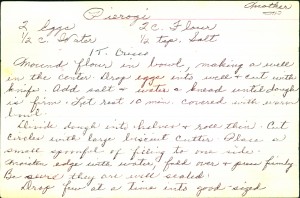 Another
Pierogi
2 eggs 2 c. Flour
1/2 c. Water 1/2 tsp. Salt
1 T. Crisco
Mound flour in bowl, making a well
in the center. Drop eggs into well & cut with
knife. Add salt & water & knead until dough
is firm. Let rest 10 min. covered with warm
bowl.
Divide dough into halves & roll thin. Cut
circles with large biscuit cutter. Place a
small spoonful of filling to one side.
Moisten edge with water, fold over & press firmly
Be sure they are well sealed.
Drop few at a time into good-sized